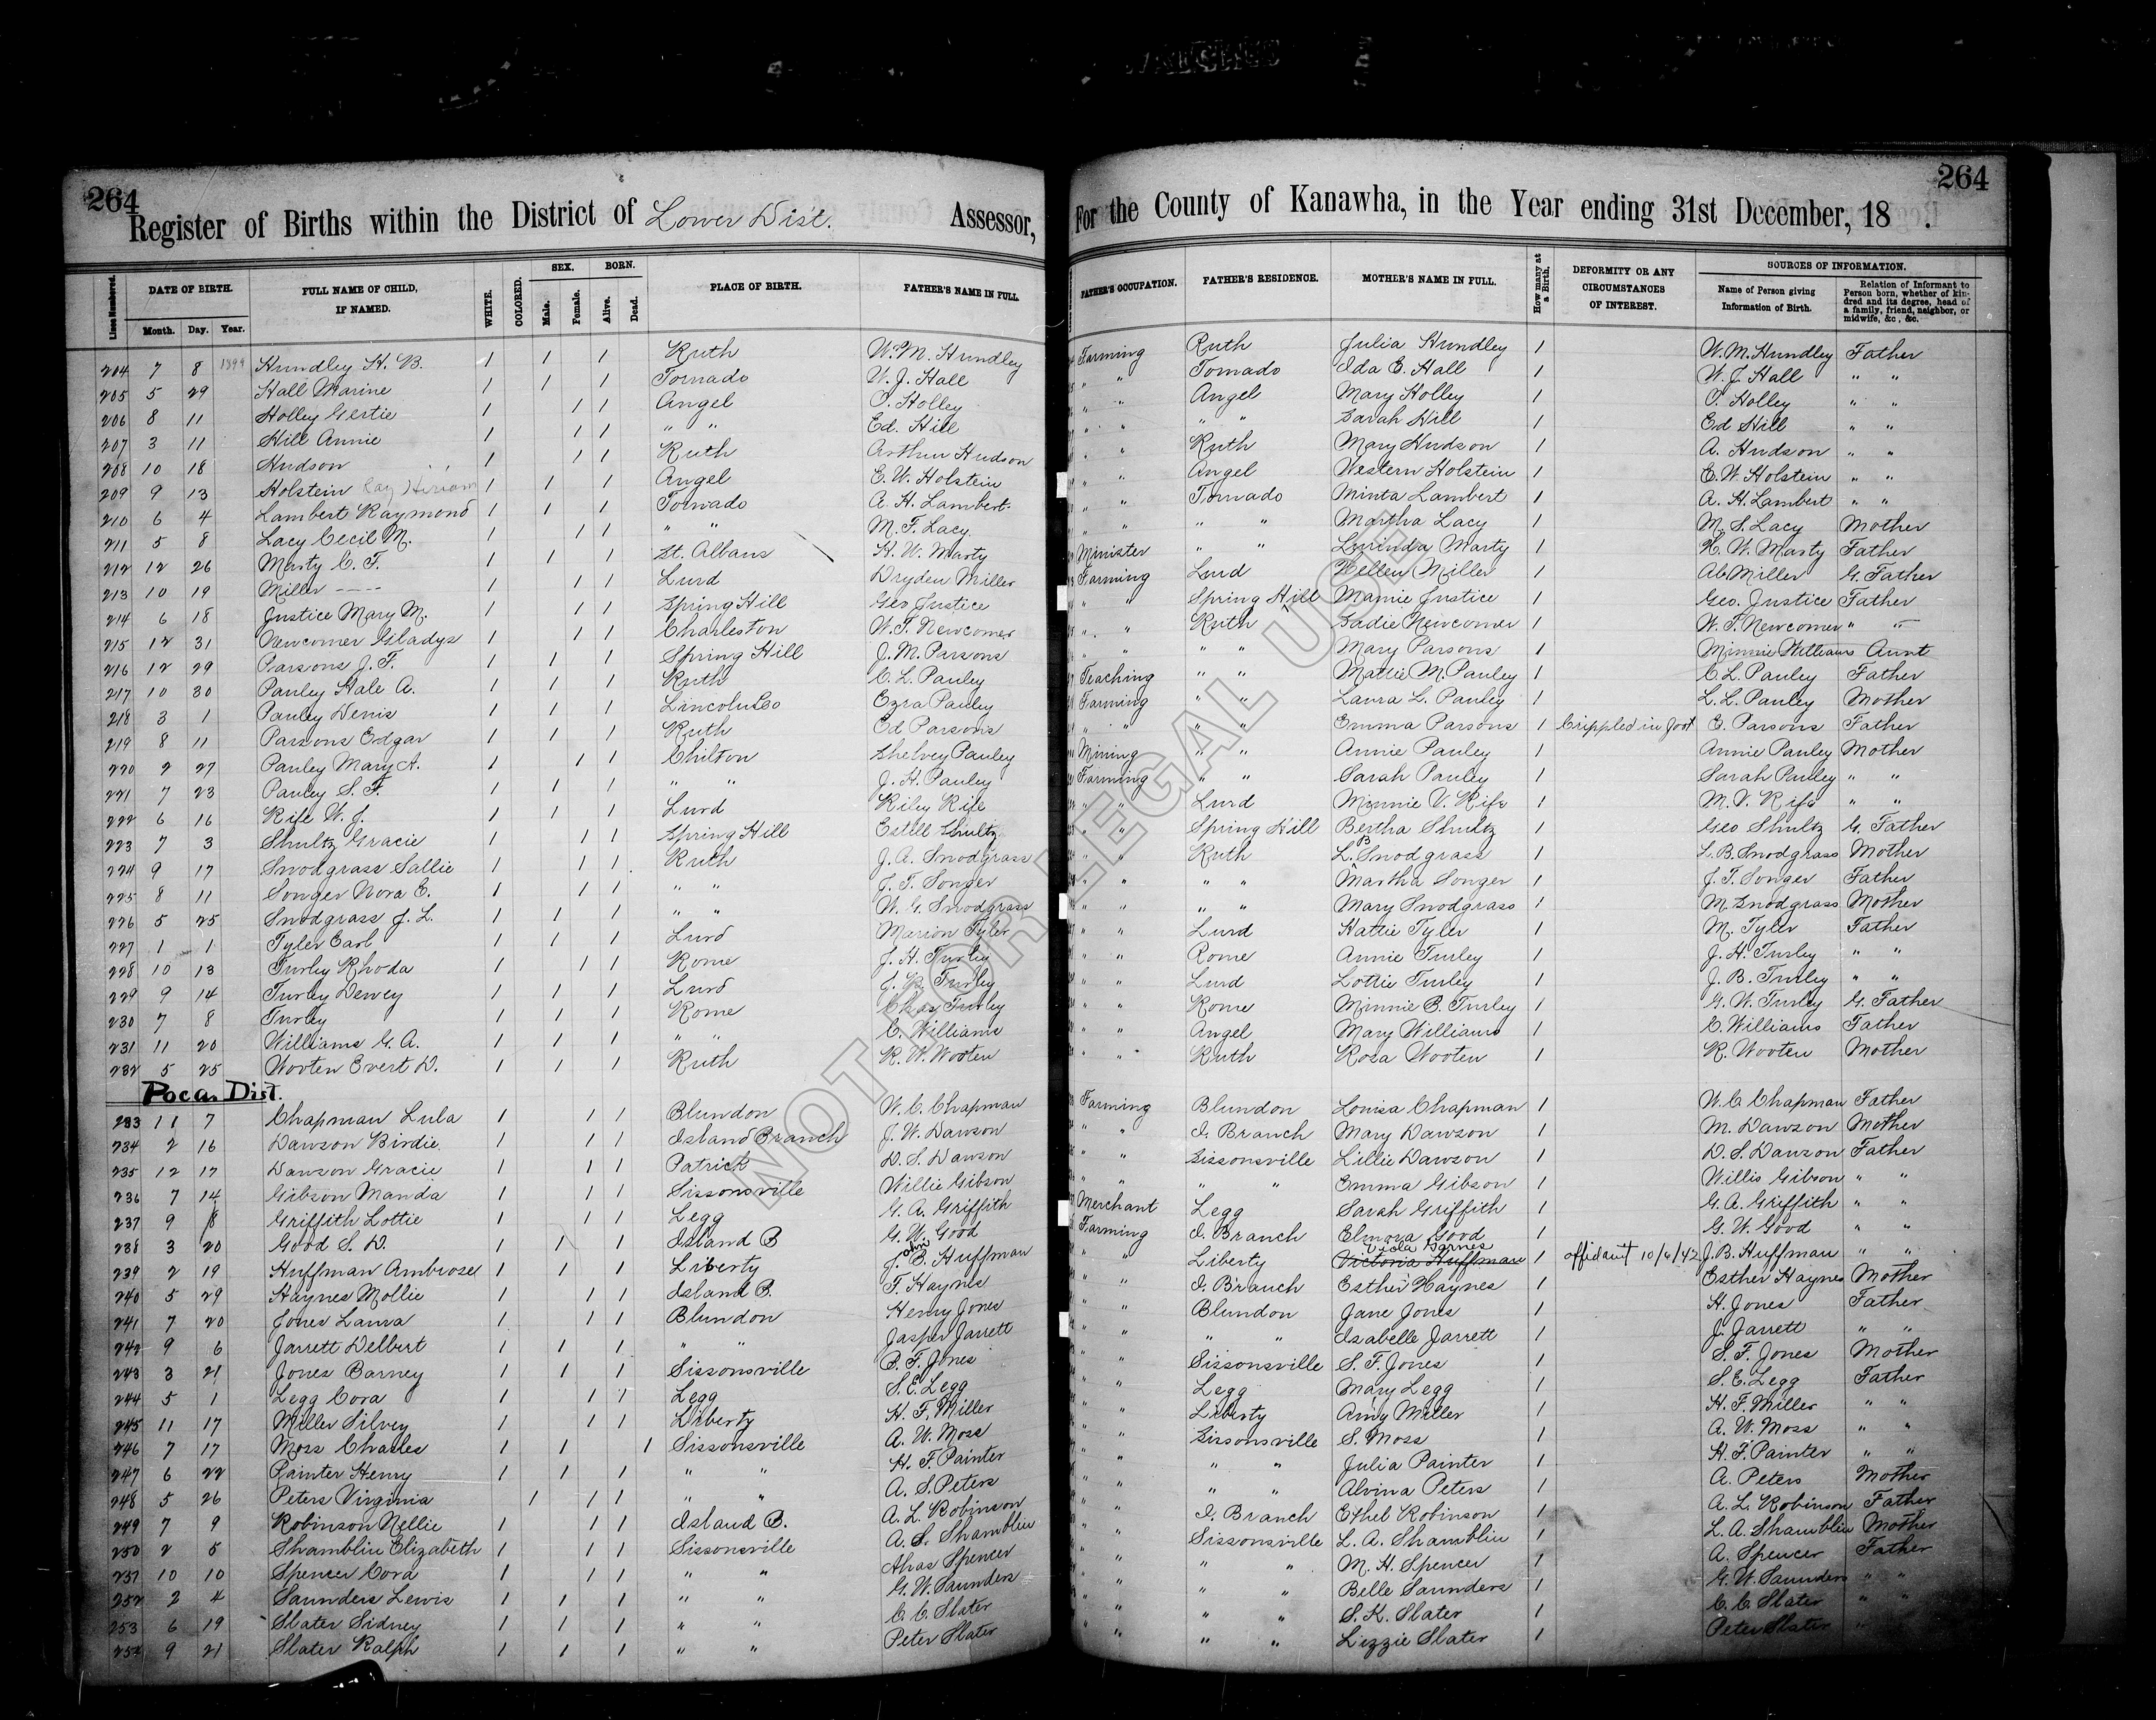 264
264
Register of Births within the District of Lower Dist. Assessor, For the County of Kanawha, in the Year ending 31st December, 18 .
Lines Numbered. DATE OF BIRTH. Month. Day. Year. FULL NAME OF CHILD, IF NAMED. WHITE. COLORED. SEX. Male. Female. BORN. Alive. Dead. PLACE OF BIRTH. FATHER'S NAME IN FULL. FATHER'S OCCUPATION. FATHER'S RESIDENCE. MOTHER'S NAME IN FULL. How many at a Birth. DEFORMITY OR ANY CIRCUMSTANCES OF INTEREST. SOURCES OF INFORMATION. Name of Person giving Information of Birth. Relation of Informant to Person born, whether of kindred and its degree, head of a family, friend, neighbor, or midwife, &c., &c.
204 7 8 1899 Hundley H. B. 1 1 1 Ruth W. M. Hundley Farming Ruth Julia Hundley 1 W. M. Hundley Father
205 5 29 Hall Marine 1 1 1 Tornado W. J. Hall " " Tornado Ida E. Hall 1 W. J. Hall " "
206 8 11 Holley Gertie 1 1 1 Angel O. Holley " " Angel Mary Holley 1 O. Holley " "
207 3 11 Hill Annie 1 1 1 " " Ed. Hill " " " " Sarah Hill 1 Ed Hill " "
208 10 18 Hudson 1 1 1 Ruth Arthur Hudson " " Ruth Mary Hudson 1 A. Hudson " "
209 9 13 Holstein Ray Hiriam 1 1 1 Angel E. W. Holstein " " Angel Western Holstein 1 E. W. Holstein " "
210 6 4 Lambert Raymond 1 1 1 Tornado A. H. Lambert " " Tornado Minta Lambert 1 A. H. Lambert " "
211 5 8 Lacy Cecil M. 1 1 1 " " M. F. Lacy " " " " Martha Lacy 1 M. S. Lacy Mother
212 12 26 Marty C. F. 1 1 1 St. Albans H. W. Marty Minister " " Lurinda Marty 1 H. W. Marty Father
213 10 19 Miller ---- 1 1 1 Lurd Dryden Miller Farming Lurd Hellen Miller 1 Ab. Miller G. Father
214 6 18 Justice Mary M. 1 1 1 Spring Hill Geo Justice " " Spring Hill Mamie Justice 1 Geo. Justice Father
215 12 31 Newcomer Gladys 1 1 1 Charleston W. F. Newcomer " " Ruth Sadie Newcomer 1 W. F. Newcomer " "
216 12 29 Parsons J. F. 1 1 1 Spring Hill J. M. Parsons " " " " Mary Parsons 1 Minnie Williams Aunt
217 10 30 Pauley Hale A. 1 1 1 Ruth C. L. Pauley Teaching " " Mattie M. Pauley 1 C. L. Pauley Father
218 3 1 Pauley Denis 1 1 1 Lincoln Co Ezra Pauley Farming " " Laura L. Pauley 1 L. L. Pauley Mother
219 8 11 Parsons Edgar 1 1 1 Ruth Ed Parsons " " " " Emma Parsons 1 Crippled in foot E. Parsons Father
220 2 27 Pauley Mary A. 1 1 1 Chilton Shelvey Pauley Mining " " Annie Pauley 1 Annie Pauley Mother
221 7 23 Pauley S. F. 1 1 1 " " J. H. Pauley Farming " " Sarah Pauley 1 Sarah Pauley " "
222 6 16 Rife W. J. 1 1 1 Lurd Riley Rife " " Lurd Minnie V. Rife 1 M. V. Rife " "
223 7 3 Shultz Gracie 1 1 1 Spring Hill Estell Shultz " " Spring Hill Bertha Shultz 1 Geo Shultz G. Father
224 9 17 Snodgrass Sallie 1 1 1 Ruth J. A. Snodgrass " " Ruth L. B Snodgrass 1 L. B. Snodgrass Mother
225 8 11 Songer Nora E. 1 1 1 " " J. T. Songer " " " " Martha Songer 1 J. T. Songer Father
226 5 25 Snodgrass J. L. 1 1 1 " " W. G. Snodgrass " " " " Mary Snodgrass 1 M. Snodgrass Mother
227 1 1 Tyler Earl 1 1 1 Lurd Marion Tyler " " Lurd Hattie Tyler 1 M. Tyler Father
228 10 13 Turley Rhoda 1 1 1 Rome J. H. Turley " " Rome Annie Turley 1 J. H. Turley " "
229 9 14 Turley Dewey 1 1 1 Lurd J. B. Turley " " Lurd Lottie Turley 1 J. B. Turley " "
230 7 8 Turley 1 1 1 Rome Chas Turley " " Rome Minnie B. Turley 1 G. W. Turley G. Father
231 11 20 Williams G. A. 1 1 1 " " C. Williams " " Angel Mary Williams 1 C. Williams Father
232 5 25 Wooten Evert D. 1 1 1 Ruth R. W. Wooten " " Ruth Rosa Wooten 1 R. Wooten Mother
Poca Dist.
233 11 7 Chapman Lula 1 1 1 Blundon W. C. Chapman Farming Blundon Louisa Chapman 1 W. C Chapman Father
234 2 16 Dawson Birdie 1 1 1 Island Branch J. W. Dawson " " I. Branch Mary Dawson 1 M. Dawson Mother
235 12 17 Dawson Gracie 1 1 1 Patrick D. S. Dawson " " Sissonsville Lillie Dawson 1 D. S. Dawson Father
236 7 14 Gibson Manda 1 1 1 Sissonsville Willie Gibson " " " " Emma Gibson 1 Willis Gibson " "
237 9 8 Griffith Lottie 1 1 1 Legg G. A. Griffith Merchant Legg Sarah Griffith 1 G. A. Griffith " "
238 3 20 Good S. D. 1 1 1 Island B G. W. Good Farming I. Branch Elmora Good 1 G. W. Good " "
239 2 19 Huffman Ambrose 1 1 1 Liberty John B. Huffman " " Liberty Viola Barnes Victoria Huffman 1 affidavit 10/6/42 J. B. Huffman " "
240 5 29 Haynes Mollie 1 1 1 Island B. T. Haynes " " I. Branch Esther Haynes 1 Esther Haynes Mother
241 7 20 Jones Laura 1 1 1 Blundon Henry Jones " " Blundon Jane Jones 1 H. Jones Father
242 9 6 Jarrett Delbert 1 1 1 " " Jasper Jarrett " " " " Isabelle Jarrett 1 J. Jarrett " "
243 3 21 Jones Barney 1 1 1 Sissonsville B. F. Jones " " Sissonsville S. F. Jones 1 S. F. Jones Mother
244 5 1 Legg Cora 1 1 1 Legg S. E. Legg " " Legg Mary Legg 1 S. E. Legg Father
245 11 17 Miller Silvey 1 1 1 Liberty H. F. Miller " " Liberty Amy Miller 1 H. F. Miller " "
246 7 17 Moss Charles 1 1 1 Sissonsville A. W. Moss " " Sissonsville S. Moss 1 A. W. Moss " "
247 6 22 Painter Henry 1 1 1 " " H. F. Painter " " " " Julia Painter 1 H. F. Painter " "
248 5 26 Peters Virginia 1 1 1 " " A. S. Peters " " " " Alvina Peters 1 A. Peters Mother
249 7 9 Robinson Nellie 1 1 1 Island B. A. L. Robinson " " I. Branch Ethel Robinson 1 A. L. Robinson Father
250 2 5 Shamblin Elizabeth 1 1 1 Sissonsville A. S. Shamblin " " Sissonsville L. A. Shamblin 1 L. A. Shamblin Mother
251 10 10 Spencer Cora 1 1 1 " " Alvas Spencer " " " " M. H. Spencer 1 A. Spencer Father
252 2 4 Saunders Lewis 1 1 1 " " G. W. Saunders " " " " Belle Saunders 1 G. W. Saunders " "
253 6 19 Slater Sidney 1 1 1 " " C. C. Slater " " " " S. K. Slater 1 C. C. Slater " "
254 9 21 Slater Ralph 1 1 1 " " Peter Slater " " " " Lizzie Slater 1 Peter Slater "
NOT FOR LEGAL USE